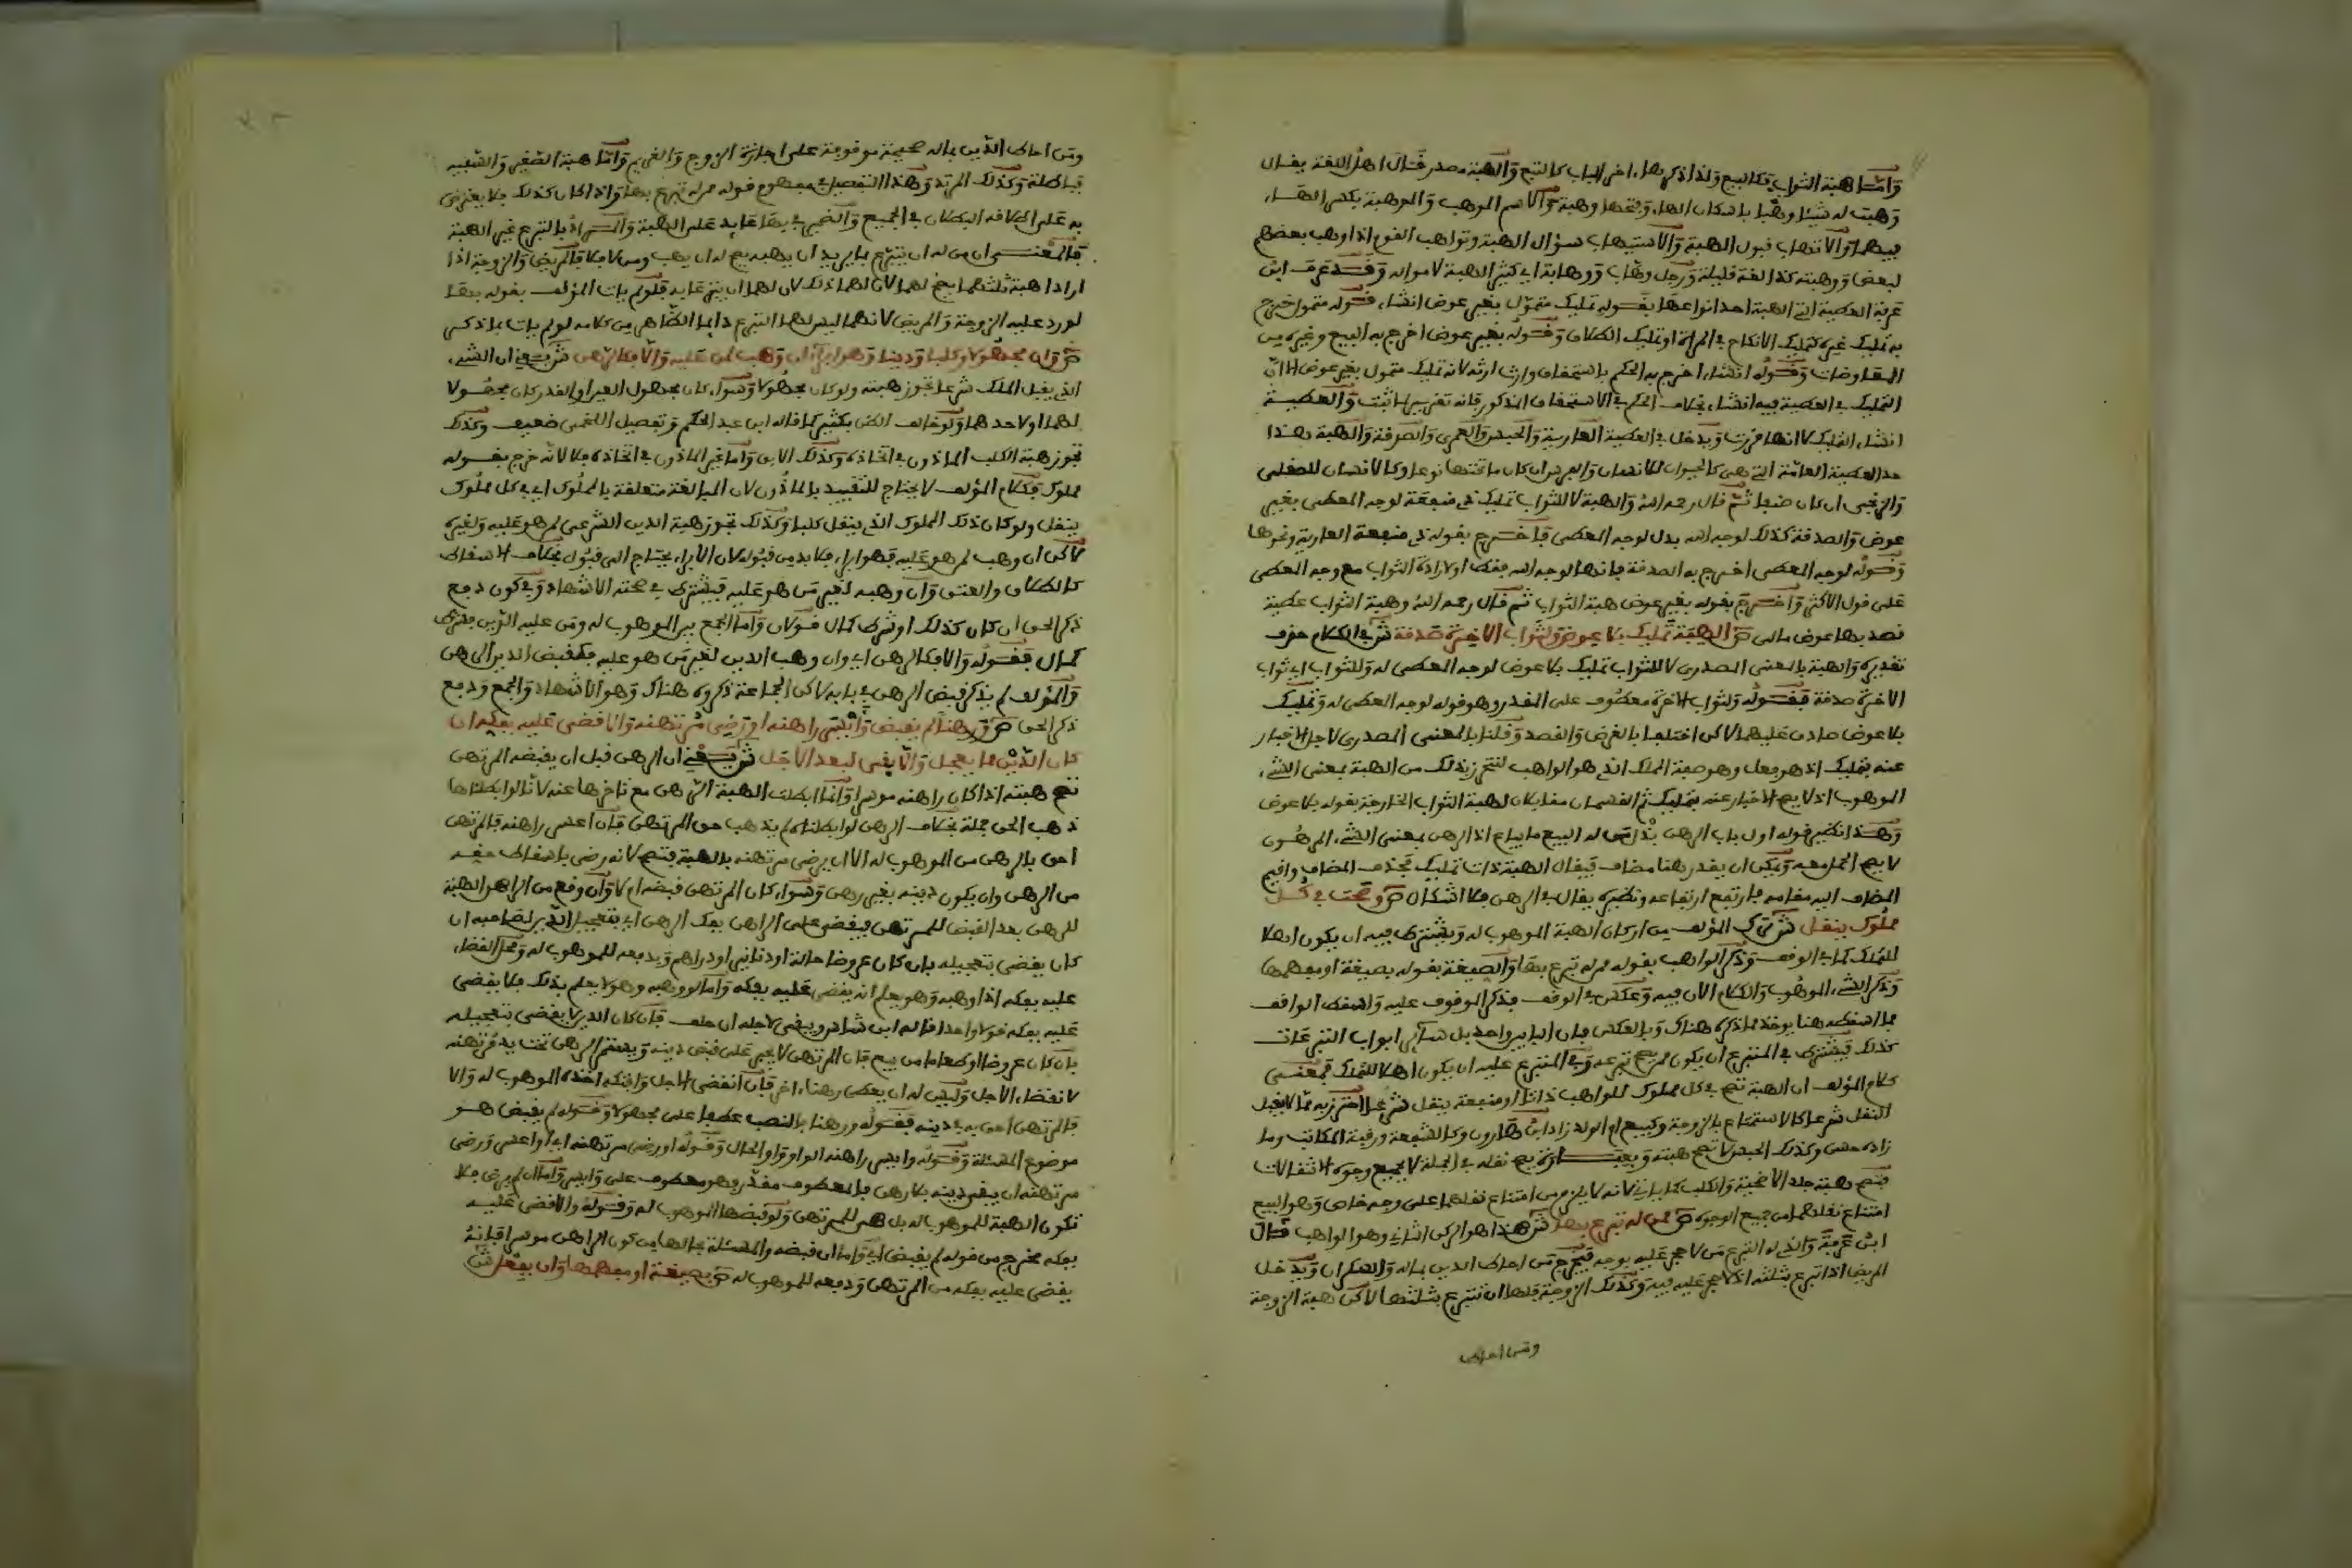 وأما هبة الثواب فكالبيع ولذا ذكرها اخر الباب كالتبع والهبة مصدر قال اهل اللغة يقال
وهبت له شيئا وهبا باسكان الهاء وفتحها وهبة والاسم الموهب والموهبة بكسر الهاء
فيهما والاتهاب قبول الهبة والاستيهاب سؤال الهبة وتواهب القوم اذا وهب بعضهم
لبعض ووهبته كذا لغة قليلة ورجل وهاب ووهابة اي كثير الهبة لامواله وقد عرف ابن
عرفة العطية التي الهبة احد انواعها بقوله تمليك متمول بغير عوض انشاء فقوله متمول خرج
به تمليك غيره كتمليك الانكاح في المراة او تمليك الطلاق وقوله بغير عوض اخرج به البيع وغيره من
المعاوضات وقوله انشاء اخرج به الحكم باستحقاق وارث ارثه لانه تمليك متمول بغير عوض الا ان
التمليك في العطية فيه انشاء بخلاف الحكم في الاستحقاق المذكور فانه تقرير لما ثبت والعطية
انشاء التمليك لانها ويدخل في العطية العارية والحبس والعمرى والصدقة والهبة بهذا
حد العطية العامة التي هي كالحيوان للانسان والفرس وان كان ما تحتها نوعا وكالانسان للصقلي
والزنجي ان كان صنفا ثم قال رحمه الله والهبة لا للثواب تمليك ذي منفعة لوجه المعطى بغير
عوض والصدقة كذلك لوجه الله بدل لوجه المعطى فاخرج بقوله ذي منفعة العارية ونحوها
وقوله لوجه المعطى اخرج به الصدقة فانها لوجه الله فقط او لارادة الثواب مع وجه المعطى
على قول الاكثر واخرج بقوله بغير عوض هبة الثواب ثم قال رحمه الله وهبة الثواب عطية
قصد بها عوض مالي ص الهبة تمليك بلا عوض ولثواب الاخرة صدقة ش في الكلام حذف
تقديره والهبة بالمعنى المصدري لا للثواب تمليك بلا عوض لوجه المعطى له وللثواب اي ثواب
الاخرة صدقة فقوله ولثواب الاخرة معطوف على المقدر وهو قوله لوجه المعطى له وتمليك
بلا عوض صادق عليهما لاكن اختلفا بالغرض والقصد وقلنا بالمعنى المصدري لاجل الاخبار
عنه بتمليك اذ هو فعل وهو صفة المملك الذي هو الواهب لنتحرز بذلك من الهبة بمعنى الشيء
الموهوب اذ لا يصح الاخبار عنه بتمليك ثم القسمان مقابلان لهبة الثواب الخارجة بقوله بلا عوض
وهذا نظير قوله اول باب الرهن بذل من له البيع ما يباع اذ الرهن بمعنى الشيء المرهون
لا يصح الحمل معه ويمكن ان يقدر هنا مضاف فيقال الهبة ذات تمليك فحذف المضاف واقيم
المضاف اليه مقامه فارتفع ارتفاعه ونظيره يقال في الرهن فلا اشكال ص وصحت في كل
مملوك ينقل ش ترك المؤلف من اركان الهبة الموهوب له ويشترط فيه ان يكون اهلا
للتملك كما في الوقف وذكر الواهب بقوله ممن له تبرع بها والصيغة بقوله بصيغة او مفهمها
وذكر الشيء الموهوب والكلام الان فيه وعكس في الوقف فذكر الموقوف عليه واسقط الواقف
فما اسقطه هنا يوخذ مما ذكره هناك وبالعكس فان البابين واحد بل سائر ابواب التبرعات
كذلك فيشترط في المتبرع ان يكون ممن يصح تبرعه وفي المتبرع عليه ان يكون اهلا للتملك فمعنى
كلام المؤلف ان الهبة تصح في كل مملوك للواهب ذاتا او منفعة ينقل شرعا احترز به مما لا يقبل
النقل شرعا كالاستمتاع بالزوجة وكبيع ام الولد زاد ابن هارون وكالشفعة ورقبة المكاتب وما
زاده حسن وكذلك الحبس لا تصح هبته وبعبارة يصح نقله في الجملة لا بجميع وجوه الانتقالات
فتصح هبة جلد الاضحية والكلب كما ياتي لانه لا يلزم من امتناع نقلهما على وجه خاص وهو البيع
امتناع نقلهما من جميع الوجوه ص ممن له تبرع بها ش هذا هو الركن الثاني وهو الواهب قال
ابن عرفة والذي له التبرع من لا حجر عليه بوجه فيخرج من احاط الدين بماله والسكران ويدخل
المريض اذا تبرع بثلثه اذ لا حجر عليه فيه وكذلك الزوجة فلها ان تتبرع بثلثها لاكن هبة الزوجة
ومن احاط
ومن احاط الدين بماله صحيحة موقوفة على اجازة الزوج والغريم واما هبة الصغير والسفيه
فباطلة وكذلك المرتد وهذا التفصيل مفهوم قوله ممن له تبرع بها واذا كان كذلك فلا يعترض
به على اطلاقه البطلان في الجميع والضمير في بها عايد على الهبة والمراد بالتبرع غير الهبة
فالمعنى ان من له ان يتبرع بما يريد ان يهبه يصح له ان يهب ومن لا فلا فالمريض والزوجة اذا
ارادا هبة ثلثهما يصح لهما لان لهما ذلك لان لهما ان يتبرعا به فلو لم يات المؤلف بقوله بها
لورد عليه الزوجة والمريض لانهما ليس لهما التبرع دايما الظاهر من كلامه لو لم يات بما ذكر
ص وان مجهولا وكلبا ودينا وهو ابراء ان وهب لمن عليه والا فكالرهن ش يعني ان الشيء
الذي يقبل الملك شرعا تجوز هبته ولو كان مجهولا وسواء كان مجهول العين او القدر كان مجهولا
لهما او لاحدهما ولو خالف الظن بكثير كما قاله ابن عبد الحكم وتفصيل اللخمي ضعيف وكذلك
تجوز هبة الكلب الماذون في اتخاذه وكذلك الابق واما غير الماذون في اتخاذه فلا لانه خرج بقوله
مملوك فكلام المؤلف لا يحتاج للتقييد بالماذون لان المبالغة متعلقة بالمملوك اي في كل مملوك
ينقل ولو كان ذلك المملوك الذي ينقل كلبا وكذلك تجوز هبة الدين الشرعي لمن هو عليه ولغيره
لاكن ان وهب لمن هو عليه فهو ابراء فلا بد من قبوله لان الابراء يحتاج الى قبول بخلاف الاسقاط
كالطلاق والعتق وان وهبه لغير من هو عليه فيشترط في صحته الاشهاد وفي كون دفع
ذكر الحق ان كان كذلك او شرط كمال قولان واما الجمع بين الموهوب له ومن عليه الدين فشرط
كمال فقوله والا فكالرهن اي وان وهب الدين لغير من هو عليه فكقبض الدين الرهن
والمؤلف لم يذكر قبض الرهن في بابه لاكن الجماعة ذكروه هناك وهو الاشهاد والجمع ودفع
ذكر الحق ص ورهنا لم يقبض وايسر راهنه او رضي مرتهنه والا قضي عليه بفكه ان
كان الدين مما يعجل والا بقي لبعد الاجل ش يعني ان الرهن قبل ان يقبضه المرتهن
تصح هبته اذا كان راهنه موسرا وانما ابطلت الهبة الرهن مع تاخرها عنه لانا لو ابطلناها
ذهب الحق جملة بخلاف الرهن لو ابطلناه لم يذهب حق المرتهن فان اعسر راهنه فالمرتهن
احق بالرهن من الموهوب له الا ان يرضى مرتهنه بالهبة فتصح لانه رضي باسقاط حقه
من الرهن وان يكون دينه بغير رهن وسواء كان المرتهن قبضه ام لا وان وقع من الراهن الهبة
للرهن بعد القبض للمرتهن فيقضى على الراهن بفك الرهن اي بتعجيل الدين لصاحبه ان
كان يقضى بتعجيله بان كان عروضا حالة او دنانير او دراهم ويدفعه للموهوب له ومحل القضاء
عليه بفكه اذا وهبه وهو يعلم انه يقضى عليه بفكه واما لو وهبه وهو لا يعلم بذلك فلا يقضى
عليه بفكه قولا واحدا قاله ابن شاس ويبقى لاجله ان حلف فان كان الدين لا يقضى بتعجيله
بان كان عروضا او طعاما من بيع فان المرتهن لا يجبر على قبض دينه ويستمر الرهن تحت يد مرتهنه
لانقضاء الاجل وليس له ان يعطى رهنا اخر فان انقضى الاجل وافتكه اخذه الموهوب له والا
فالمرتهن احق به في دينه فقوله ورهنا بالنصب عطفا على مجهولا وقوله لم يقبض هو
موضوع المسئلة وقوله وايسر راهنه الواو واو الحال وقوله او رضي مرتهنه اي او اعسر ورضي
مرتهنه ان يبقى دينه بلا رهن فالمعطوف مقدر وهو معطوف على وايسر واما ان لم يرض فلا
تكون الهبة للموهوب له بل هي للمرتهن ولو قبضها الموهوب له وقوله والا قضي عليه
بفكه مخرج من قوله لم يقبض اي واما ان قبضه والمسئلة بحالها من كون الراهن موسرا فانه
يقضى عليه بفكه من المرتهن ودفعه للموهوب له ص بصيغة او مفهمها وان بفعل ش